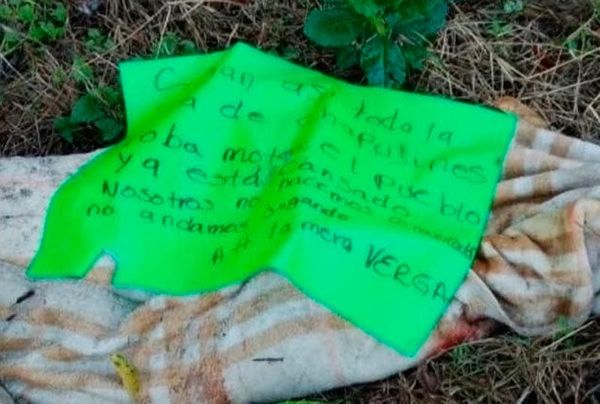 así toda la
a de chapulines
roba motos el pueblo
ya está cansado
Nosotros no hacemos
no andamos jugando
Att la mera VERGA